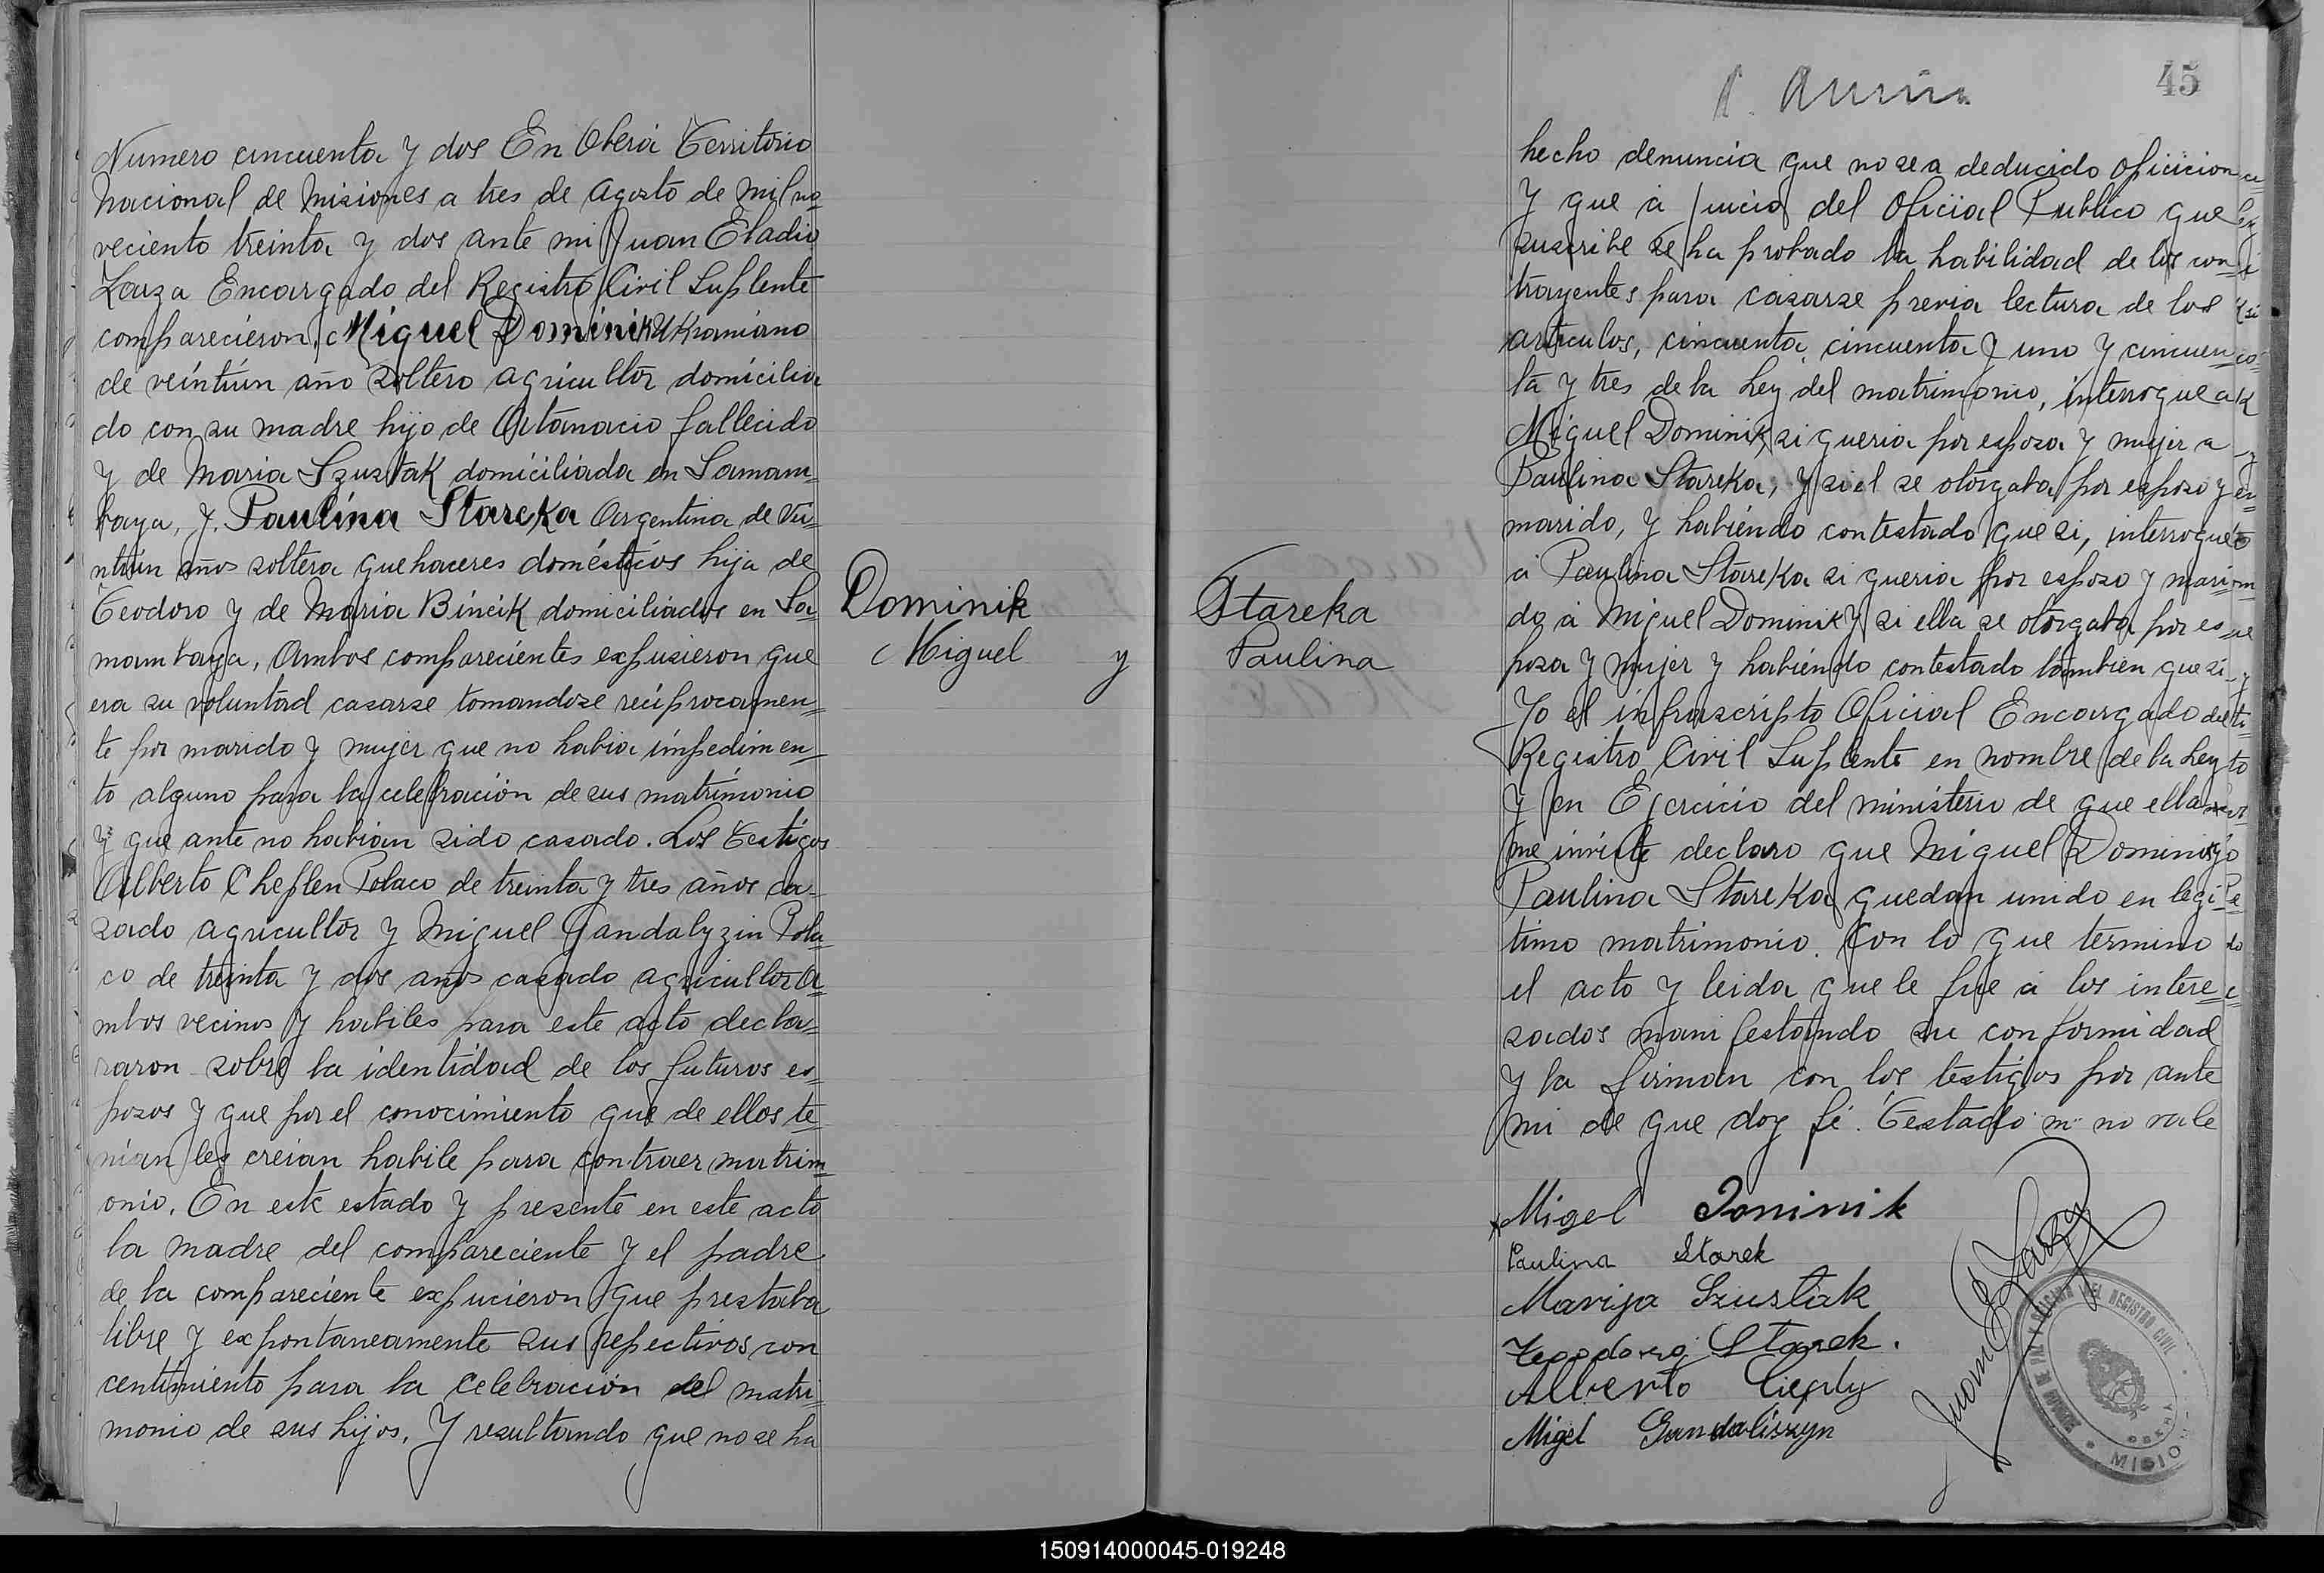 Numero cincuenta y dos En Oberá Territorio
Nacional de Misiones a tres de Agosto de mil no=
veciento treinta y dos ante mi Juan Eladio
Loza Encargado del Registro Civil Suplente
comparecieron, Miguel Dominik Ukraniano
de veintiun año soltero agricultor domicilia
do con su madre hijo de Atanacio fallecido
y de Maria Szustak domiciliada en Samam=
baya, y. Paulina Stareka Argentina de Vei=
ntiun años soltera quehaceres domésticos hija de
Teodoro y de Maria Bincik domiciliados en Sa=
mambaya, Ambos comparecientes expusieron que
era su voluntad casarse tomandose reciprocamen=
te por marido y mujer que no habia impedimen=
to alguno para la celebración de sus matrimonio
y que ante no habian sido casado. Los Testigos
Alberto Cheplen Polaco de treinta y tres años ca=
sado agricultor y Miguel Gandalyzin Pola=
co de treinta y dos años casado agricultor A=
mbos vecinos y habiles para este acto decla=
raron sobre la identidad de los futuros es=
posos y que por el conocimiento que de ellos te=
nian les creian habile para contraer matrim=
onio. En este estado y presente en este acto
la madre del compareciente y el padre
de la compareciente expucieron que prestaba
libre y expontaneamente sus repectivos con
centimiento para la celebración del matri=
monio de sus hijos. Y resultando que no se ha
Dominik
Miguel y
Stareka
Paulina
45
hecho denuncia que no sea deducido oficicion
y que á juicio del Oficial Publico que
suscribe se ha probado la habilidad de los con=
trayentes para casarse previa lectura de los
articulos, cincuenta, cincuenta y uno y cincuen=
ta y tres de la Ley del matrimonio, interrogue a
Miguel Dominik, si queria por esposa y mujer a
Paulina Stareka, y si el se otorgaba por esposo y
marido, y habiéndo contestado que si, interrogué
á Paulina Stareka si queria por esposo y mari=
do á Miguel Dominik y si ella se otorgaba por es=
posa y mujer y habiéndo contestado tambien que si
Yo el infrascripto Oficial Encargado del
Registro Civil Suplente en nombre de la Ley
y en Ejercicio del ministerio de que ella
me inviste declaro que Miguel Dominik y
Paulina Stareka quedan unido en legi=
timo matrimonio. Con lo que termino
el acto y leida que le fue á los intere=
sados manifestando su conformidad
y la firman con los testigos por ante
mi de que doy fé. Testado m no vale
Migel Dominik
Paulina Starek
Marija Szustak
Teodoro Starek.
Alberto Cieply
Migel Gandaliszyn
Juan E Loza
JUZGADO DE PAZ Y OFICINA DEL REGISTRO CIVIL
OBERÁ
MISIO
150914000045-019248